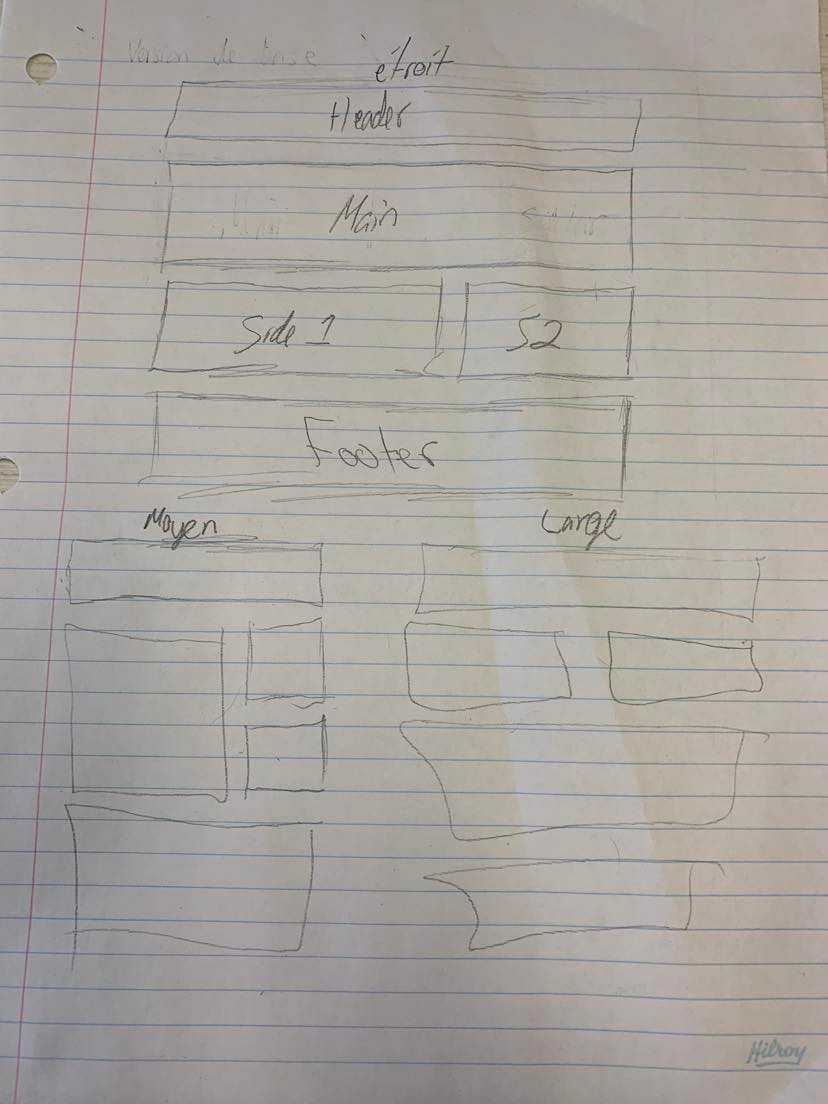 Version de base
étroit
Header
Main
Side 1
S2
Footer
Moyen
Large
Hilroy